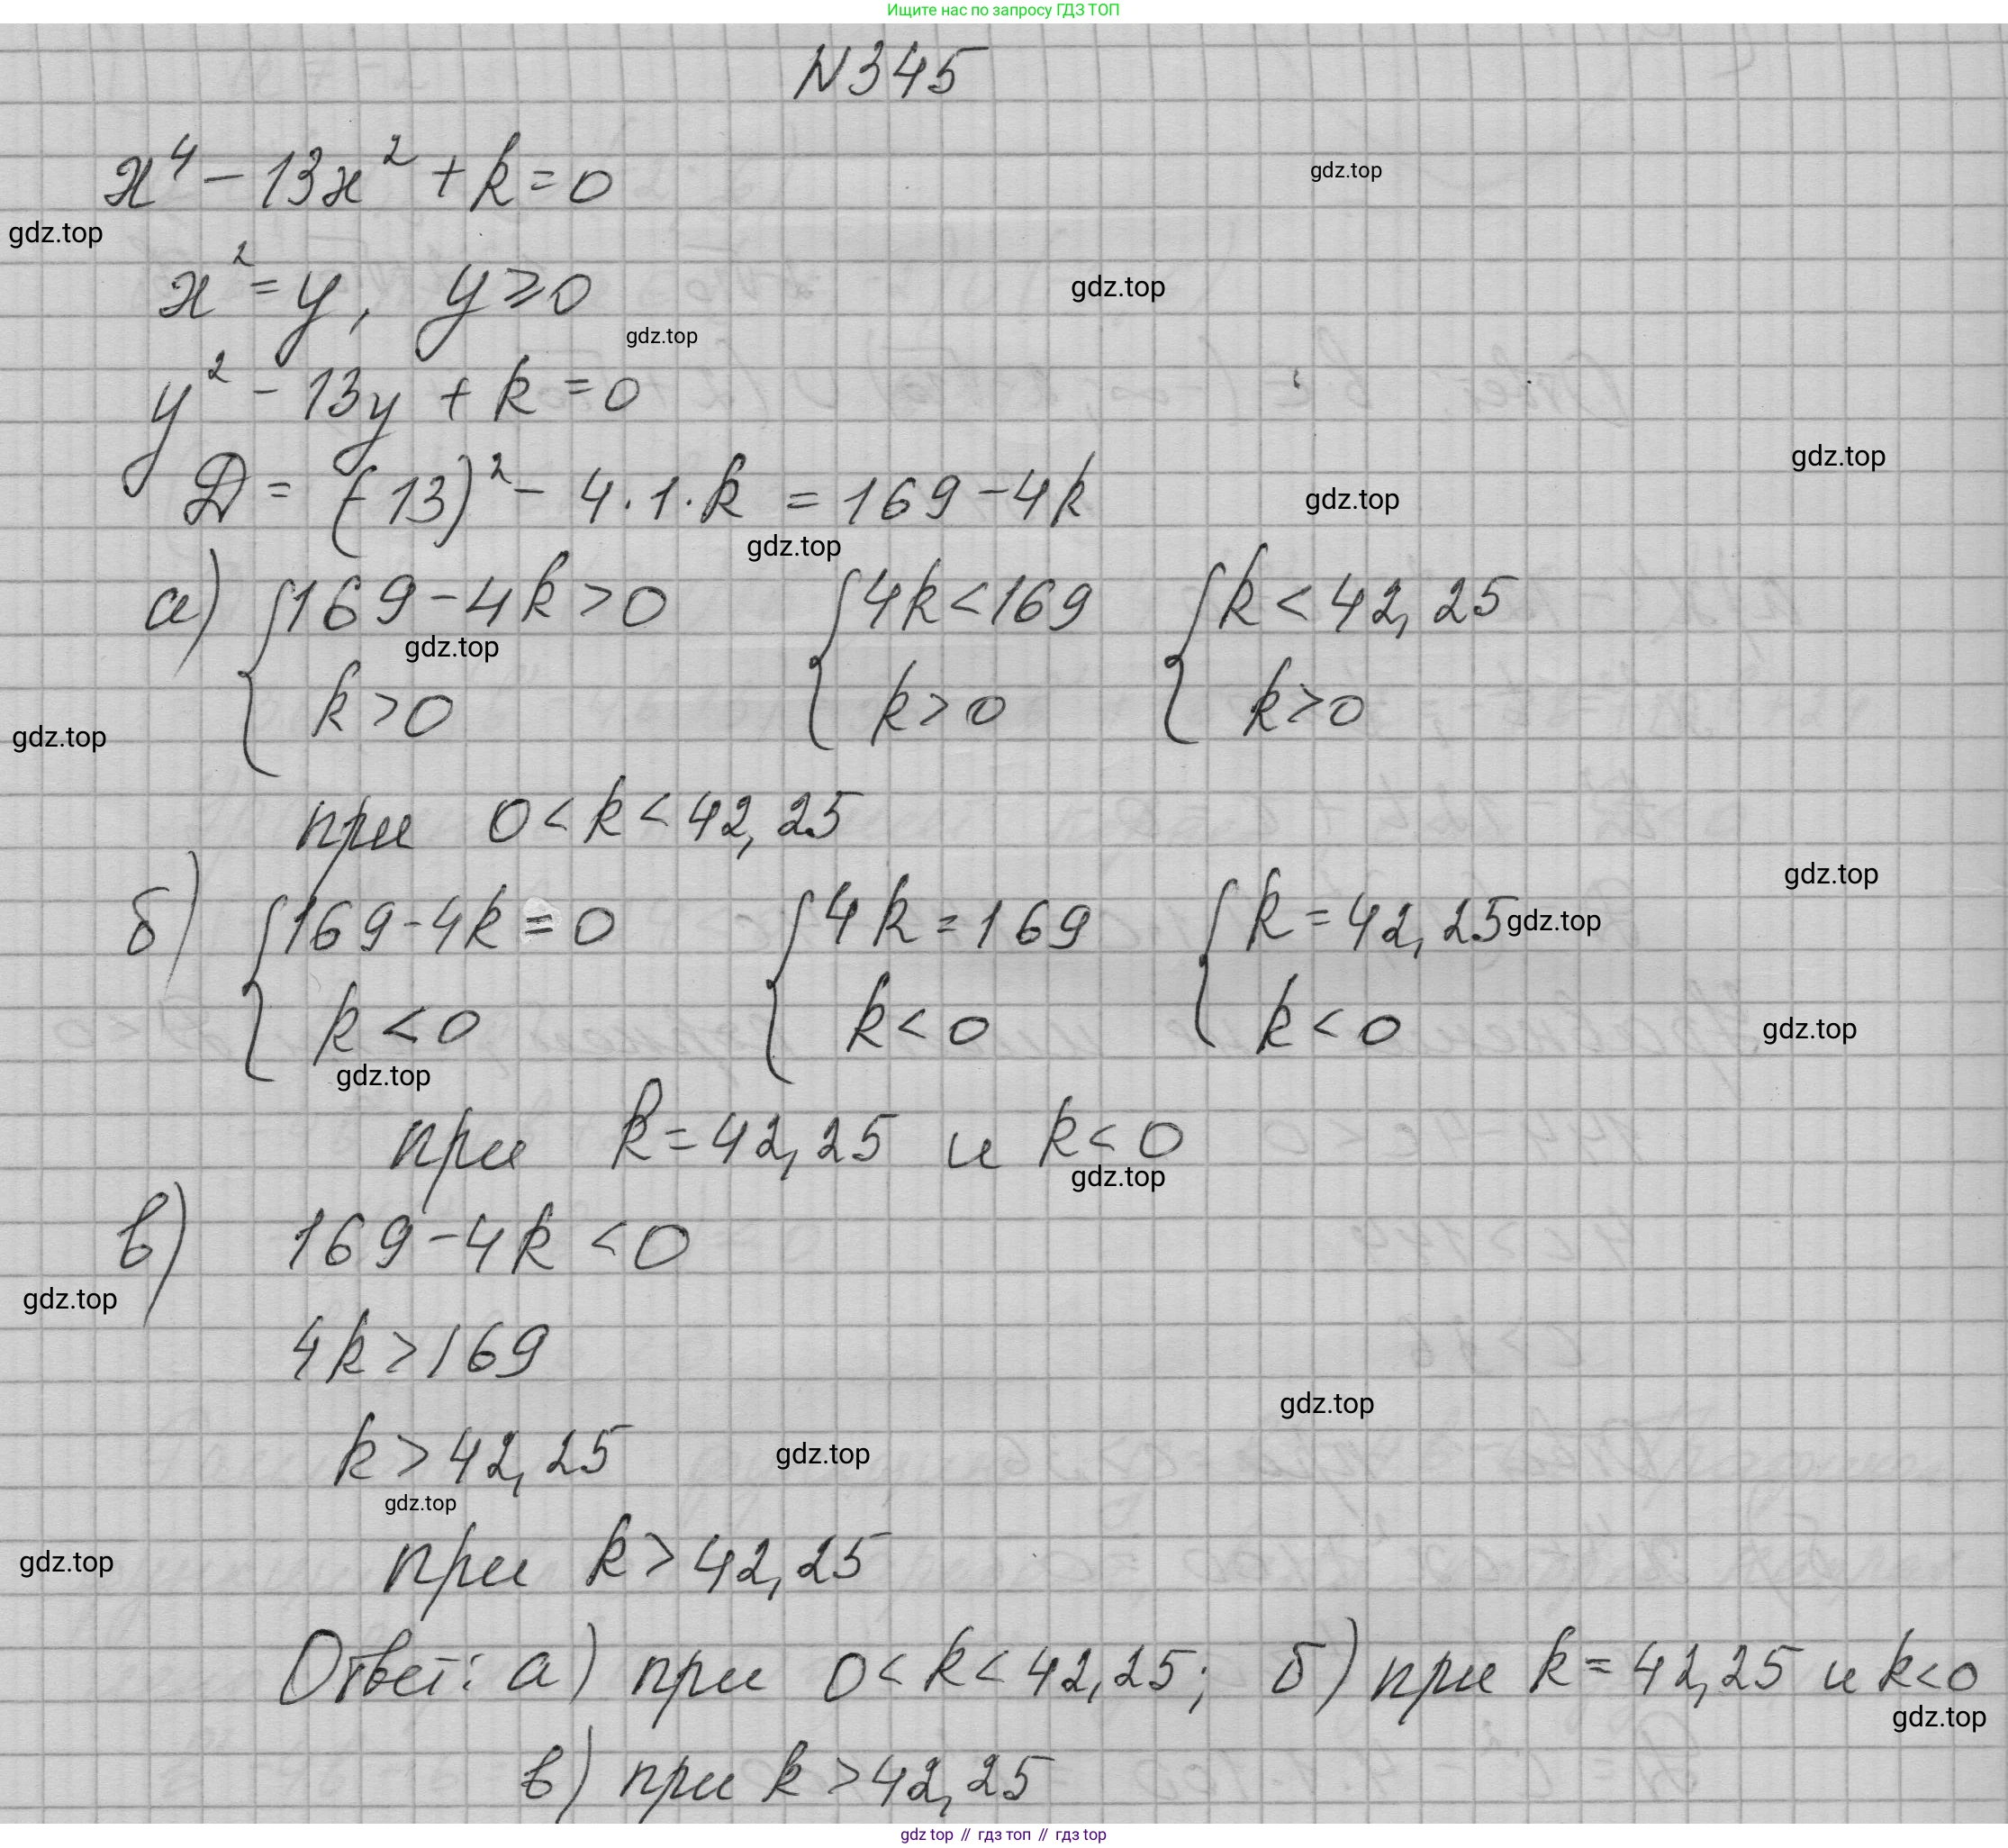 Ищите нас по запросу ГДЗ ТОП
N345
x⁴ - 13x² + k = 0
gdz.top
gdz.top
x² = y, y ⩾ 0
gdz.top
gdz.top
y² - 13y + k = 0
gdz.top
D = (-13)² - 4·1·k = 169 - 4k
gdz.top
gdz.top
а) { 169 - 4k > 0 { 4k < 169 { k < 42,25
gdz.top
k > 0 k > 0 k > 0
gdz.top
при 0 < k < 42,25
gdz.top
б) { 169 - 4k = 0 { 4k = 169 { k = 42,25
gdz.top
k < 0 k < 0 k < 0
gdz.top
gdz.top
при k = 42,25 и k < 0
gdz.top
в) 169 - 4k < 0
gdz.top
4k > 169
gdz.top
k > 42,25
gdz.top
gdz.top
при k > 42,25
gdz.top
Ответ: а) при 0 < k < 42,25; б) при k = 42,25 и k < 0
gdz.top
в) при k > 42,25
gdz top // гдз топ // gdz top